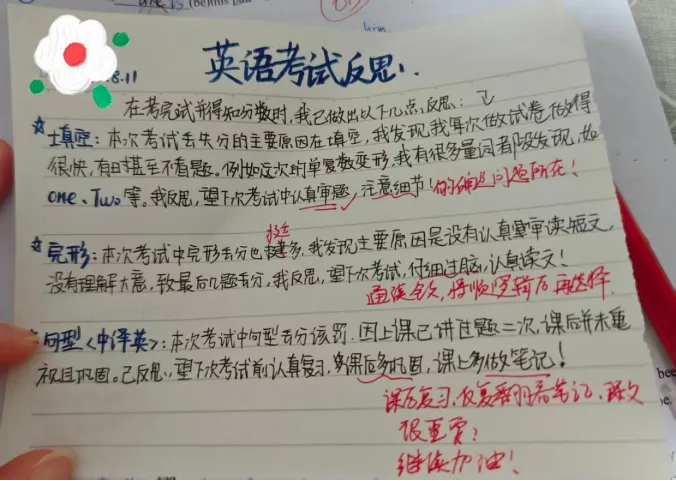 (be)this
him
8.11
英语考试反思.
在考完试并得知分数时,我已做出以下几点反思:
☆填空:本次考试丢失分的主要原因在填空,我发现我每次做试卷做得
很快,有时甚至不看题。例如这次的单复数变形,我有很多量词都没发现,如
one、Two等。我反思,望下次考试中认真审题,注意细节!
你能编造问题所在!
☆完形:本次考试中完形丢分也挺多,我发现主要原因是没有认真审读短文,
没有理解大意,致最后几题丢分。我反思,望下次考试,仔细过脑,认真读文!
通读全文,将顺逻辑后再选择
句型<中译英>:本次考试中句型丢分该罚.因上课已讲过题二次,课后并未重
视且巩固。已反思,望下次考试前认真复习,课后多巩固,课上多做笔记!
课后复习,反复翻看笔记,
很重要!
继续加油!
bee